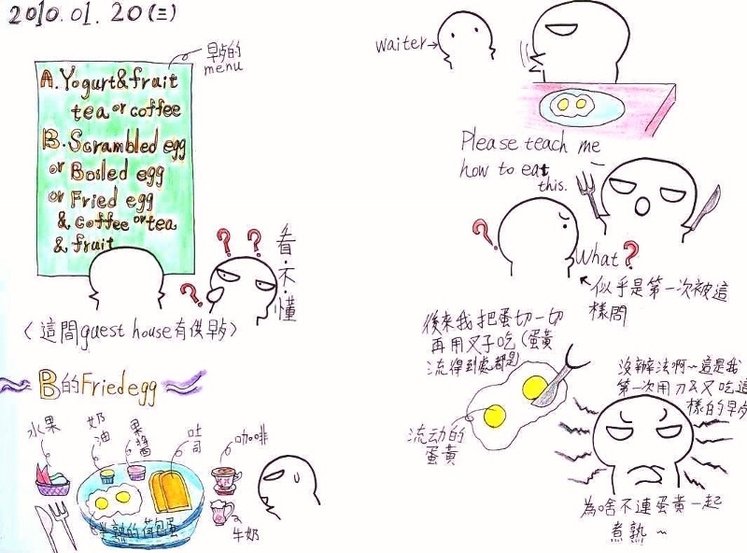 2010.01.20(三)
早歺的
menu
A.Yogurt&fruit
tea or coffee
B.Scrambled egg
or Boiled egg
or Fried egg
& coffee or tea
& fruit
? ?
?
看·不·懂
(這間guest house有供早歺)
B的Fried egg
水果
奶油
果醬
吐司
咖啡
牛奶
半熟的荷包蛋
waiter
Please teach me
how to eat
this.
?
What?
似乎是第一次被這
樣問
後來我把蛋切一切
再用叉子吃(蛋黃
流得到處都是)
流动的
蛋黃
沒辦法啊~這是我
第一次用刀&叉吃這
樣的早歺
為啥不連蛋黃一起
煮熟~